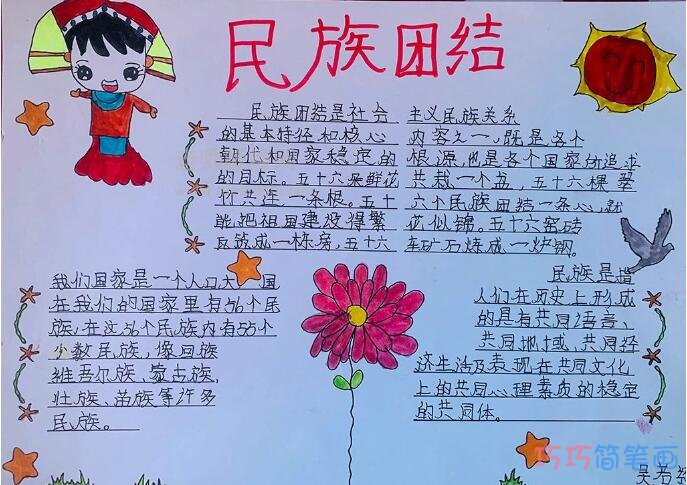 民族团结
民族团结是社会主义民族关系
的基本特征和核心内容之一,既是各个
朝代和国家稳定的根源,也是各个国家所追求
的目标。五十六朵鲜花共栽一个盆,五十六棵翠
竹共连一条根。五十六个民族团结一条心,就
能把祖国建设得繁花似锦。五十六窑砖
瓦筑成一栋房,五十六车矿石炼成一炉钢。
我们国家是一个人口大国
在我们的国家里有56个民
族,在这56个民族内有55个
少数民族,像回族
维吾尔族、蒙古族,
壮族、苗族等许多
民族。
民族是指
人们在历史上形成
的具有共同语言、
共同地域、共同经
济生活及表现在共同文化
上的共同心理素质的稳定
的共同体。
巧巧简笔画
吴若